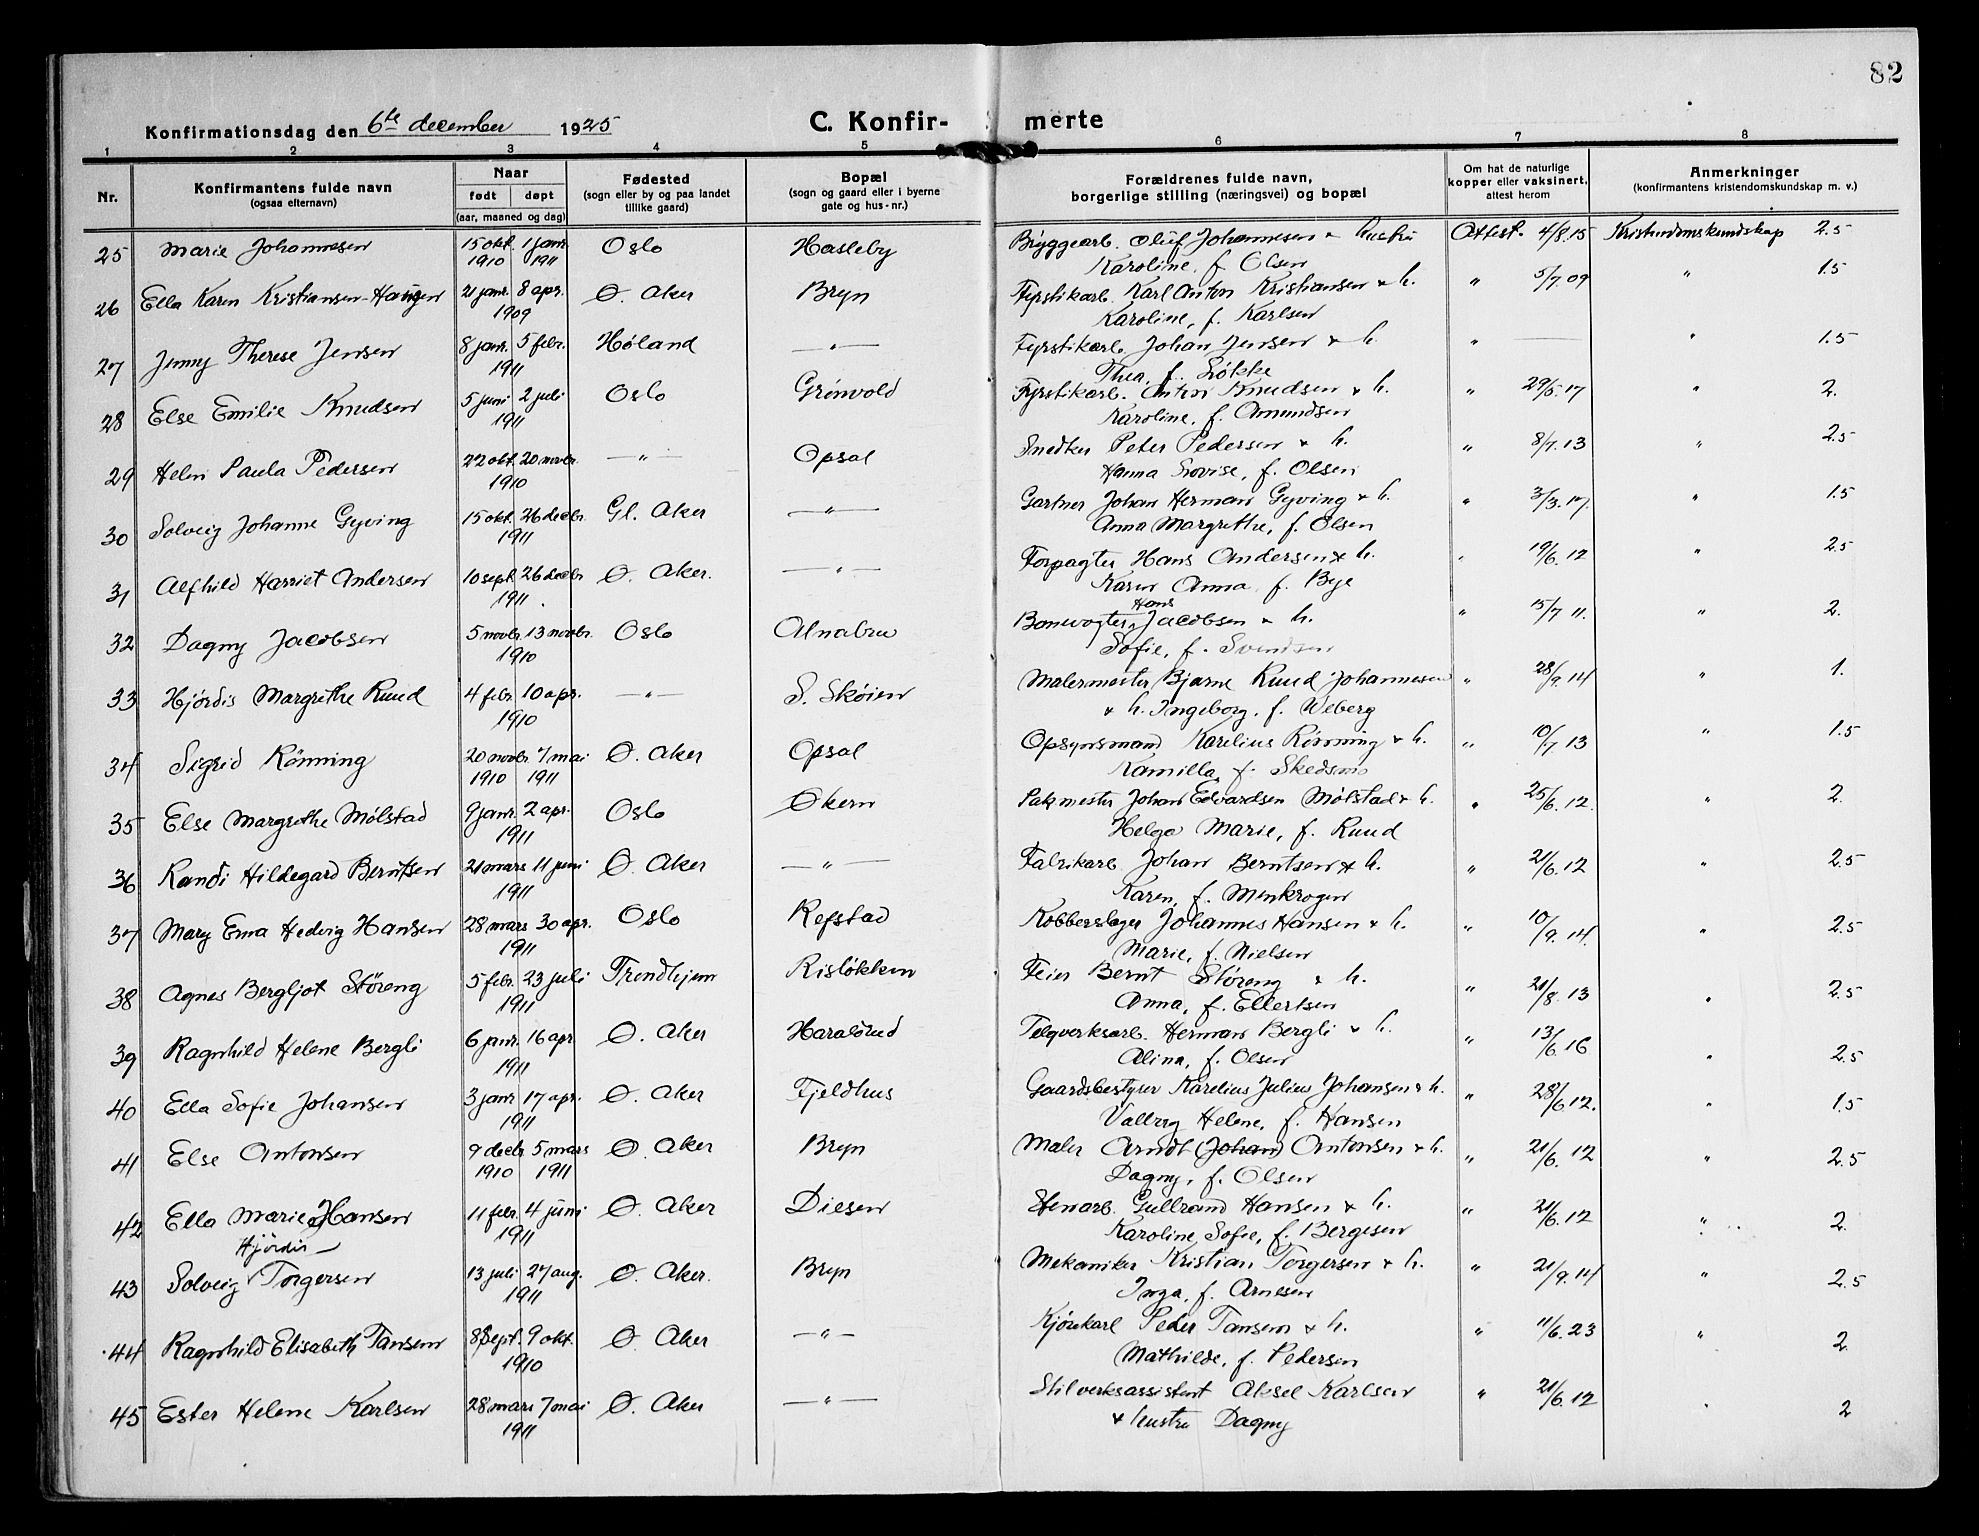 82
Konfirmationsdag den 6te december 1925 C. Konfir- merte
1 2 3 4 5 6 7 8
Nr. Konfirmantens fulde navn (ogsaa efternavn) Naar født døpt (aar, maaned og dag) Fødested (sogn eller by og paa landet tillike gaard) Bopæl (sogn og gaard eller i byerne gate og hus-nr.) Forældrenes fulde navn, borgerlige stilling (næringsvei) og bopæl Om hat de naturlige kopper eller vaksinert, attest herom Anmerkninger (konfirmantens kristendomskundskap m. v.)
25 Marie Johannesen 15 okt. 1 janr. Oslo Hasleby Bryggearb. Oluf Johannesen & hustru Attest. 4/8.15 Kristendomskundskap 2.5
1910 1911 Karoline, f. Olsen
26 Ella Karen Kristiansen-Haugen 21 janr. 8 apr. Ø. Aker Bryn Fyrstikarb. Karl Anton Kristiansen & h. " 5/7.09 " 1.5
1909 Karoline, f. Karlsen
27 Jenny Therese Jensen 8 janr. 5 febr. Høland —"— Fyrstikarb. Johan Jensen & h. " — " 1.5
1911 Thea, f. Løkke
28 Else Emilie Knudsen 5 juni 2 juli Oslo Grønvold Fyrstikarb. Anton Knudsen & h. " 29/5.17 " 2.
1911 Karoline, f. Amundsen
29 Helen Paula Pedersen 22 okt. 20 novbr. —"— Opsal Snedker Peter Pedersen & h. " 8/7.13 " 2.5
1910 Hanna Lovise, f. Olsen
30 Solveig Johanne Gyving 15 okt. 26 decbr. Gl. Aker —"— Gartner Johan Herman Gyving & h. " 3/3.17. " 1.5
1911 Anna Margrethe, f. Olsen
31 Alfhild Harriet Andersen 10 sept. 26 decbr. Ø. Aker. —"— Forpagter Hans Andersen & h. " 19/6.12 " 2.5
1911. Karen Anna f. Bye
32 Dagny Jacobsen 5 novbr. 13 novbr. Oslo Alnabru Banevogter Hans Jacobsen & h. " 15/7 11. " 2.
1910 Sofie, f. Svendsen
33 Hjördis Margrethe Ruud 4 febr. 10 apr. —"— S. Skøien Malermester Bjarne Ruud Johannesen " 28/9.14 " 1.
1910 & h. Ingeborg, f. Weberg
34 Sigrid Rönning 20 novbr. 7 mai Ø. Aker Opsal Opsynsmand Karelius Rönning & h. " 10/7 13 " 1.5
1910 1911 Kamilla, f. Skedsmo
35 Else Margrethe Mølstad 9 janr. 2 apr. Oslo Økern Pakmester Johan Edvardsen Mølstad & h. " 25/6.12. " 2.
1911 Helga Marie, f. Ruud
36 Randi Hildegard Berntsen 21 mars 11 juni Ø. Aker —"— Fabrikarb. Johan Berntsen & h. " 21/6.12 " 2.5
1911 Karen, f. Menkrogen
37 Mary Erna Hedvig Hansen 28 mars 30 apr. Oslo Refstad Kobberslager Johannes Hansen & h. " 10/9.14. " 2.5
1911 Marie, f. Nielsen
38 Agnes Bergljot Støreng 5 febr. 23 juli Trondhjem Risløkken Feier Bernt Støreng & h. " 21/8.13 " 2.5
1911 Anna, f. Ellertsen
39 Ragnhild Helene Bergli 6 janr. 16 apr. Ø. Aker Haraldrud Telqverksarb. Herman Bergli & h. " 13/6.16 " 2.5
1911 Alina, f. Olsen
40 Ella Sofie Johansen 3 janr. 17 apr. Ø. Aker Fjeldhus Gaardsbestyrer Karelius Julius Johansen & h. " 28/6.12. " 1.5
1911 Valborg Helene, f. Hansen
41 Else Antonsen 9 decbr 5 mars Ø. Aker Bryn Maler Arndt (Johan) Antonsen & h. " 21/6.12 " 2.5
1910 1911 Dagny, f. Olsen
42 Ella Marie Hansen 11 febr. 4 juni Ø. Aker Diesen Stenarb. Gullrand Hansen & h. " 21/6.12 " 2.
1911 Karoline Sofie, f. Bergesen
Hjördis
43 Solveig Torgersen 13 juli 27 aug. Ø. Aker. Bryn Mekaniker Kristian Torgersen & h. " 21/9.14 " 2.5
1911 Inga, f. Arnesen
44 Ragnhild Elisabeth Tansem 8 sept. 9 okt. Ø. Aker —"— Kjørekarl Peder Tansem & h. " 11/6.23 " 2
1910 Mathilde, f. Pedersen
45 Ester Helene Karlsen 28 mars 7 mai Ø. Aker —"— Stilverksassistent Aksel Karlsen " 21/6.12 " 2
1911 & hustru Dagny